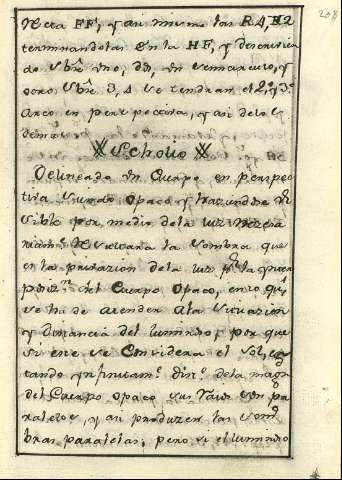 Recta FF, y asi mismo las R4, R2
terminandolas en la HF, y descrivien
do sbrê uno, dos, un semicirculo, y
otro sbrê 3, 4 se tendran el 2º y 3º
Arco en perspectiva, y asi de los
demas
Scholio
Delineado un Cuerpo en perspec
tiva siendo opaco y haziendose vi
sible por medio de la luz
la sombra que
es la privazion de la luz pr la
del Cuerpo Opaco, en lo ql
se ha de atender a la situazion
y distancia del luminoso, por que
si este se Considera el sol, es
tando infinitamte distte de la magd
del Cuerpo opaco sus raios son pa
ralelos, y asi produzen las som
bras paralelas; pero si el luminoso